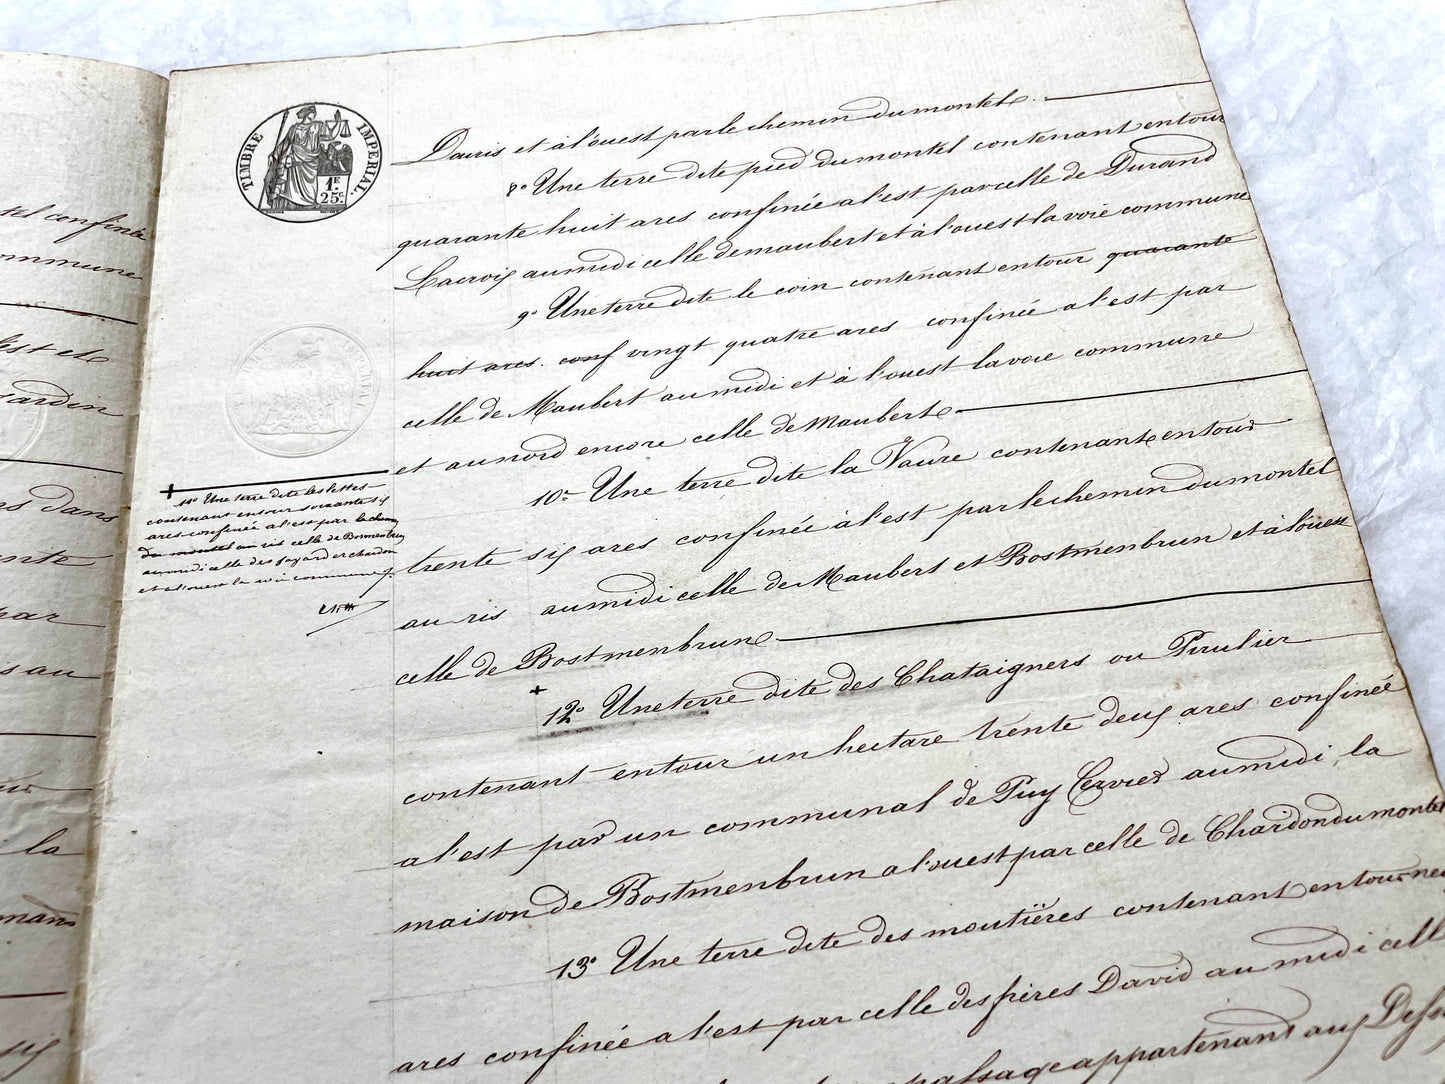 tel confinée
commune
l'est et
jardin
dans
ente
par
s au
la
TIMBRE IMPERIAL
1F.
25c.
Dauris et à l'ouest par le chemin du montel.
8° Une terre dite pied du montel contenant entour
quarante huit ares confinée a l'est parcelle de Durand
Lacroix au midi celle de maubert et à l'ouest la voie commune
9° Une terre dite le coin contenant entour quarante
huit ares. conf vingt quatre ares confinée a l'est par
celle de Maubert au midi et à l'ouest la voie commune
et au nord encore celle de Maubert
10° Une terre dite la Vaure contenant entour
trente six ares confinée à l'est par le chemin du montel
au ris au midi celle de Maubert et Bostmenbrun et à l'ouest
celle de Bostmenbrun
11° Une terre dite les lettes
contenant entour soixante six
ares confinée a l'est par le chemin
du montel au ris celle de Bonmenbrun
au midi celle des fayard et chardon
et a l'ouest la voie commune
12° Une terre dite des Chataigners ou Pirulier
contenant entour un hectare trente deux ares confinée
a l'est par un communal de Puy Cervier au midi la
maison de Bostmenbrun a l'ouest par celle de Chardon du montel
13° Une terre dite des moutiëres contenant entour neuf
ares confinée a l'est par celle des frères David au midi celle
passage appartenant aux